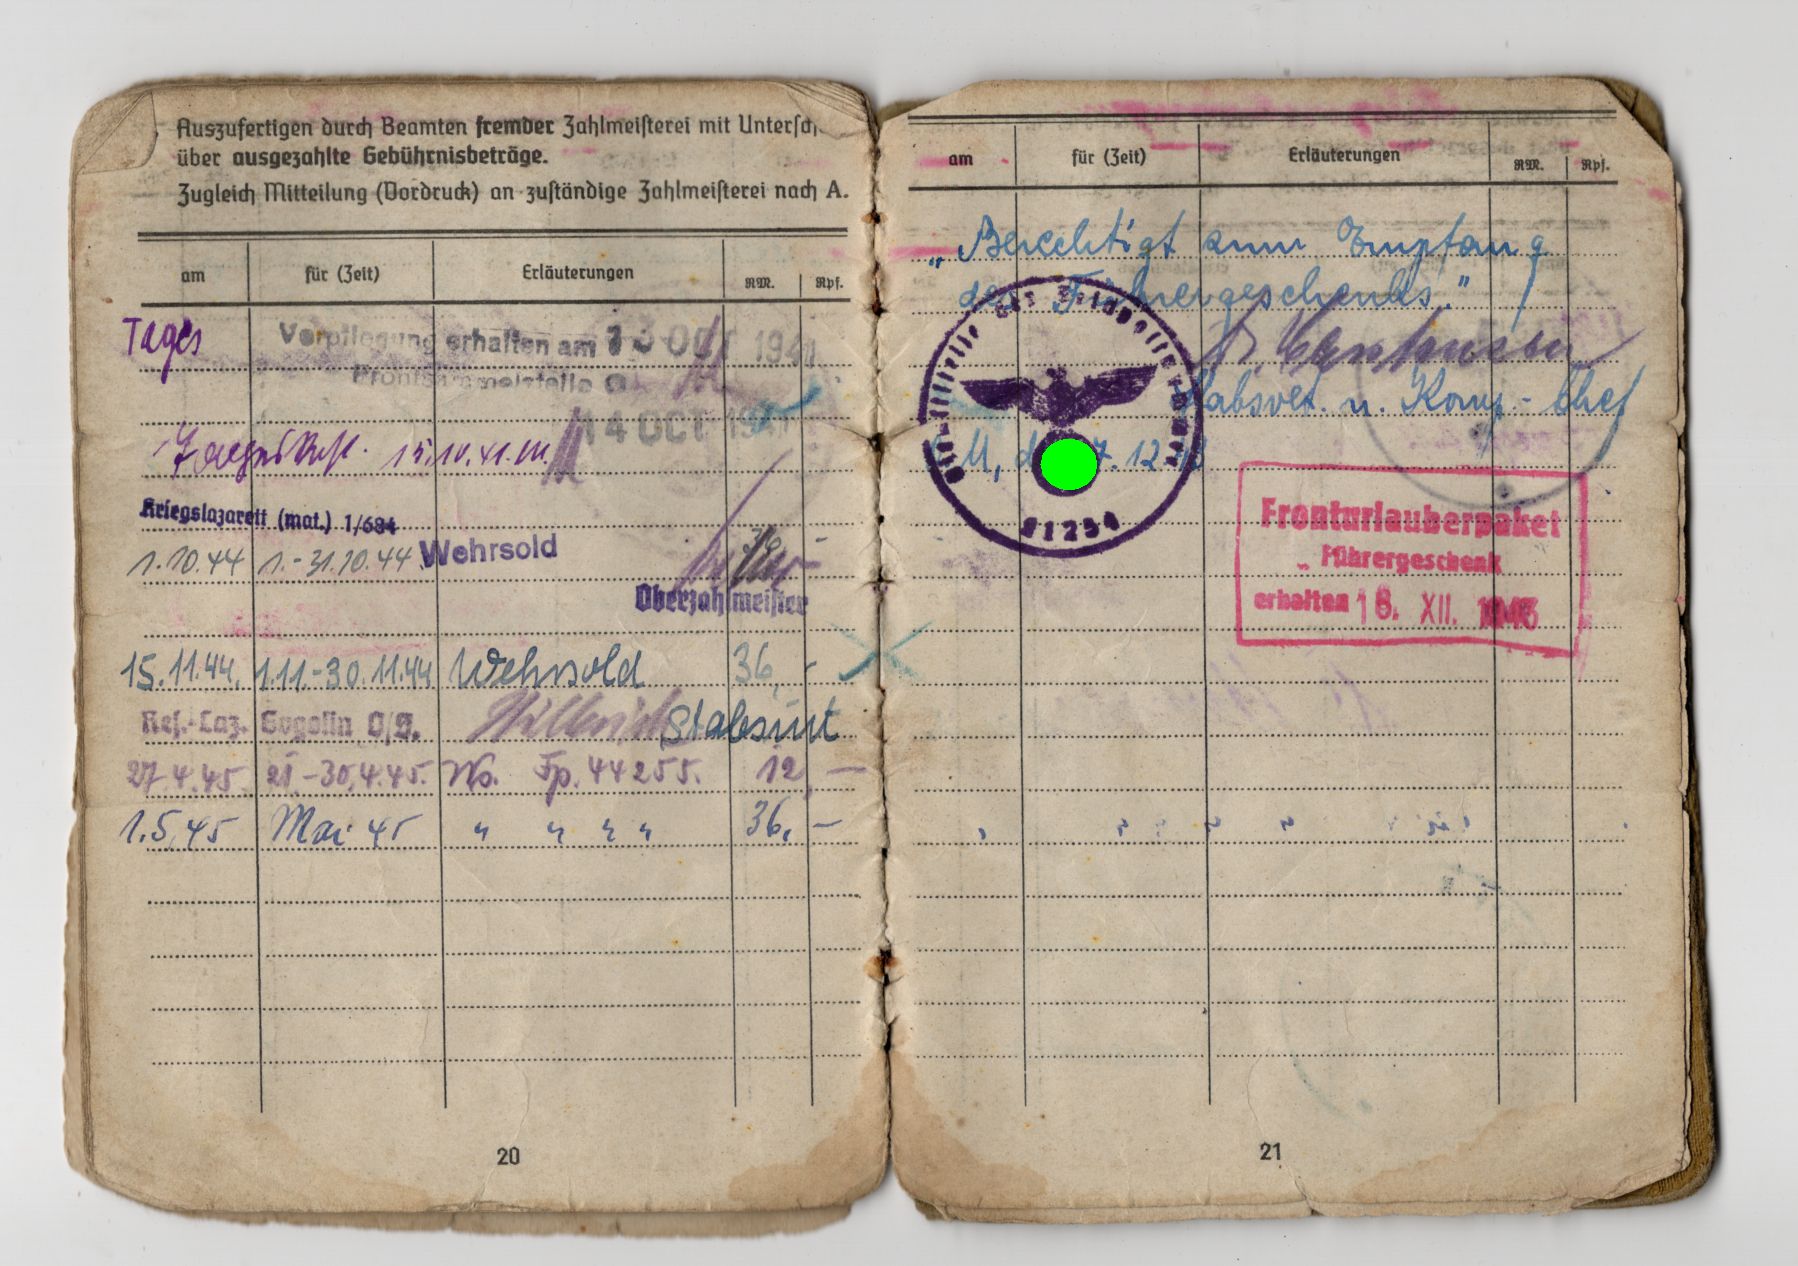 Auszufertigen durch Beamten fremder Zahlmeisterei mit Untersch
über ausgezahlte Gebührnisbeträge.
Zugleich Mitteilung (Vordruck) an zuständige Zahlmeisterei nach A.
am für (Zeit) Erläuterungen RM. Rpf.
Tages
Verpflegung erhalten am 13 OCT 1941
Frontsammelstelle
14 OCT 1941
15.10.41.
Kriegslazarett (mot.) 1/684
1.10.44 1.-31.10.44 Wehrsold 36 -
Oberzahlmeister
15.11.44. 1.11.-30.11.44 Wehrsold 36,-
Res.-Laz. Gogolin O/S. Stabsint
27.4.45 21.-30.4.45. Ws. Fp. 44255. 12,-
1.5.45 Mai 45 " " " " 36,-
20
am für (Zeit) Erläuterungen RM. Rpf.
„Berechtigt zum Empfang
des Führergeschenks."
Stabsvet. u. Komp.-Chef
7.12.43
Dienststelle der Feldpostnummer
01254
Fronturlauberpaket
„Führergeschenk
erhalten 18. XII. 1943
21